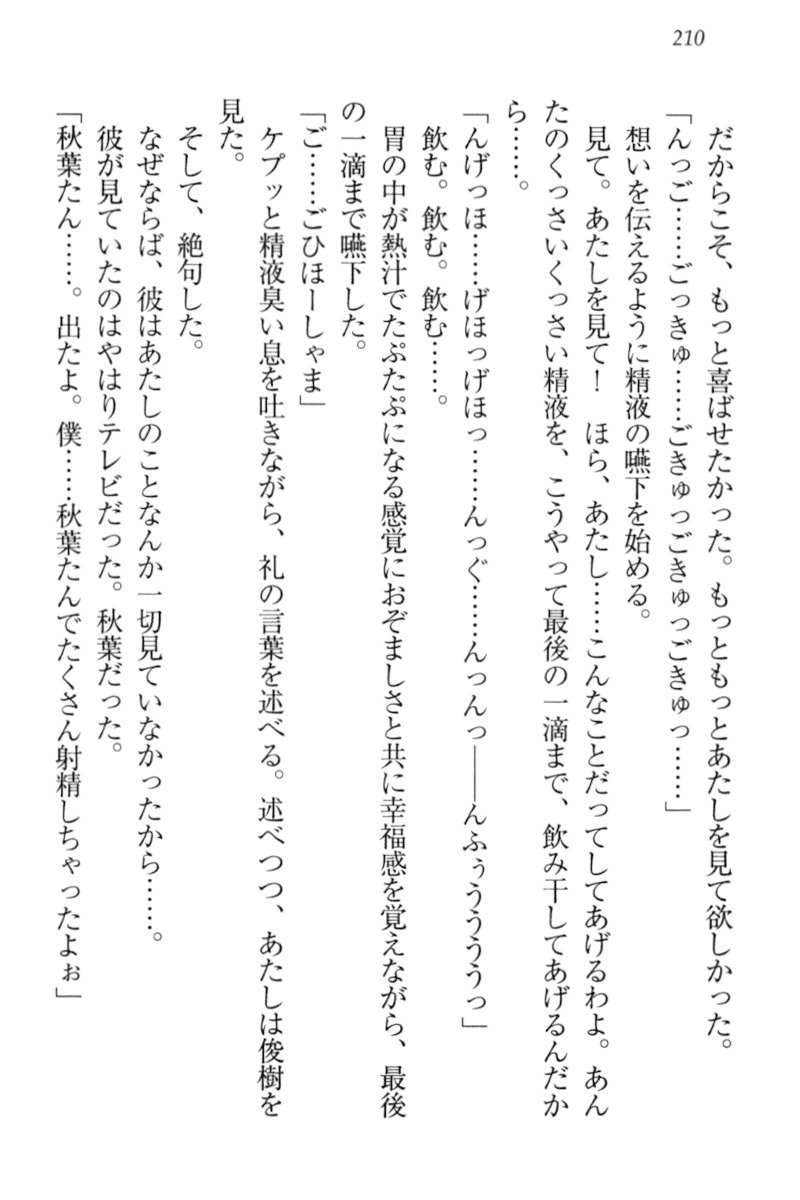 210
だからこそ、もっと喜ばせたかった。もっともっとあたしを見て欲しかった。
「んっご……ごっきゅ……ごきゅっごきゅっごきゅっ……」
想いを伝えるように精液の嚥下を始める。
見て。あたしを見て！　ほら、あたし……こんなことだってしてあげるわよ。あん
たのくっさいくっさい精液を、こうやって最後の一滴まで、飲み干してあげるんだか
ら……。
「んげっほ……げほっげほっ……んっぐ……んっんっ――んふぅうううっ」
飲む。飲む。飲む……。
胃の中が熱汁でたぷたぷになる感覚におぞましさと共に幸福感を覚えながら、最後
の一滴まで嚥下した。
「ご……ごひほーしゃま」
ケプッと精液臭い息を吐きながら、礼の言葉を述べる。述べつつ、あたしは俊樹を
見た。
そして、絶句した。
なぜならば、彼はあたしのことなんか一切見ていなかったから……。
彼が見ていたのはやはりテレビだった。秋葉だった。
「秋葉たん……。出たよ。僕……秋葉たんでたくさん射精しちゃったよぉ」